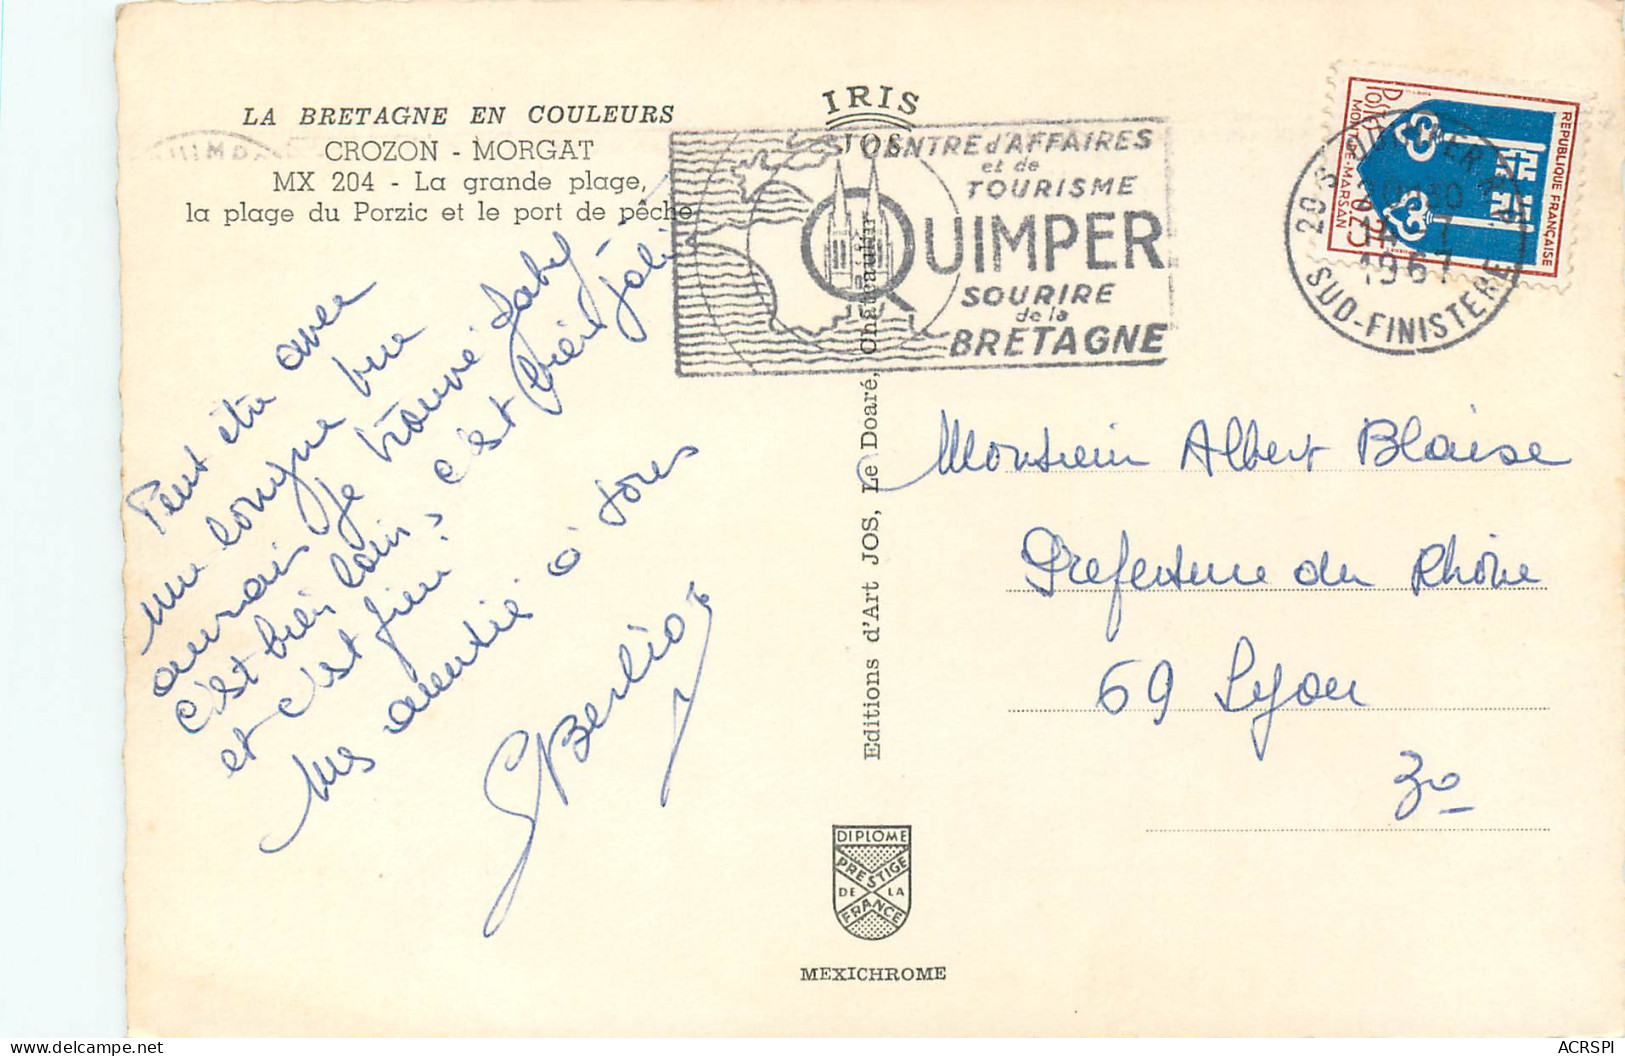 LA BRETAGNE EN COULEURS
CROZON - MORGAT
MX 204 - La grande plage,
la plage du Porzic et le port de pêche
Peut être avec
une longue vue
aurais je trouvé Gaby
c'est bien loin, c'est bien joli
et c'est fini
Mes amitiés à tous
GBerlioz
IRIS
JOS
CENTRE d'AFFAIRES
et de
TOURISME
QUIMPER
SOURIRE
de la
BRETAGNE
Editions d'Art JOS, Le Doaré, Chateaulin
DIPLOME
PRESTIGE
DE LA
FRANCE
MEXICHROME
REPUBLIQUE FRANÇAISE
Postes
0,25
MONT-DE-MARSAN
QUIMPER R.P.
14 - 7
1967
SUD-FINISTERE
Monsieur Albert Blaise
Prefecture du Rhône
69 Lyon
3º
ACRSPI